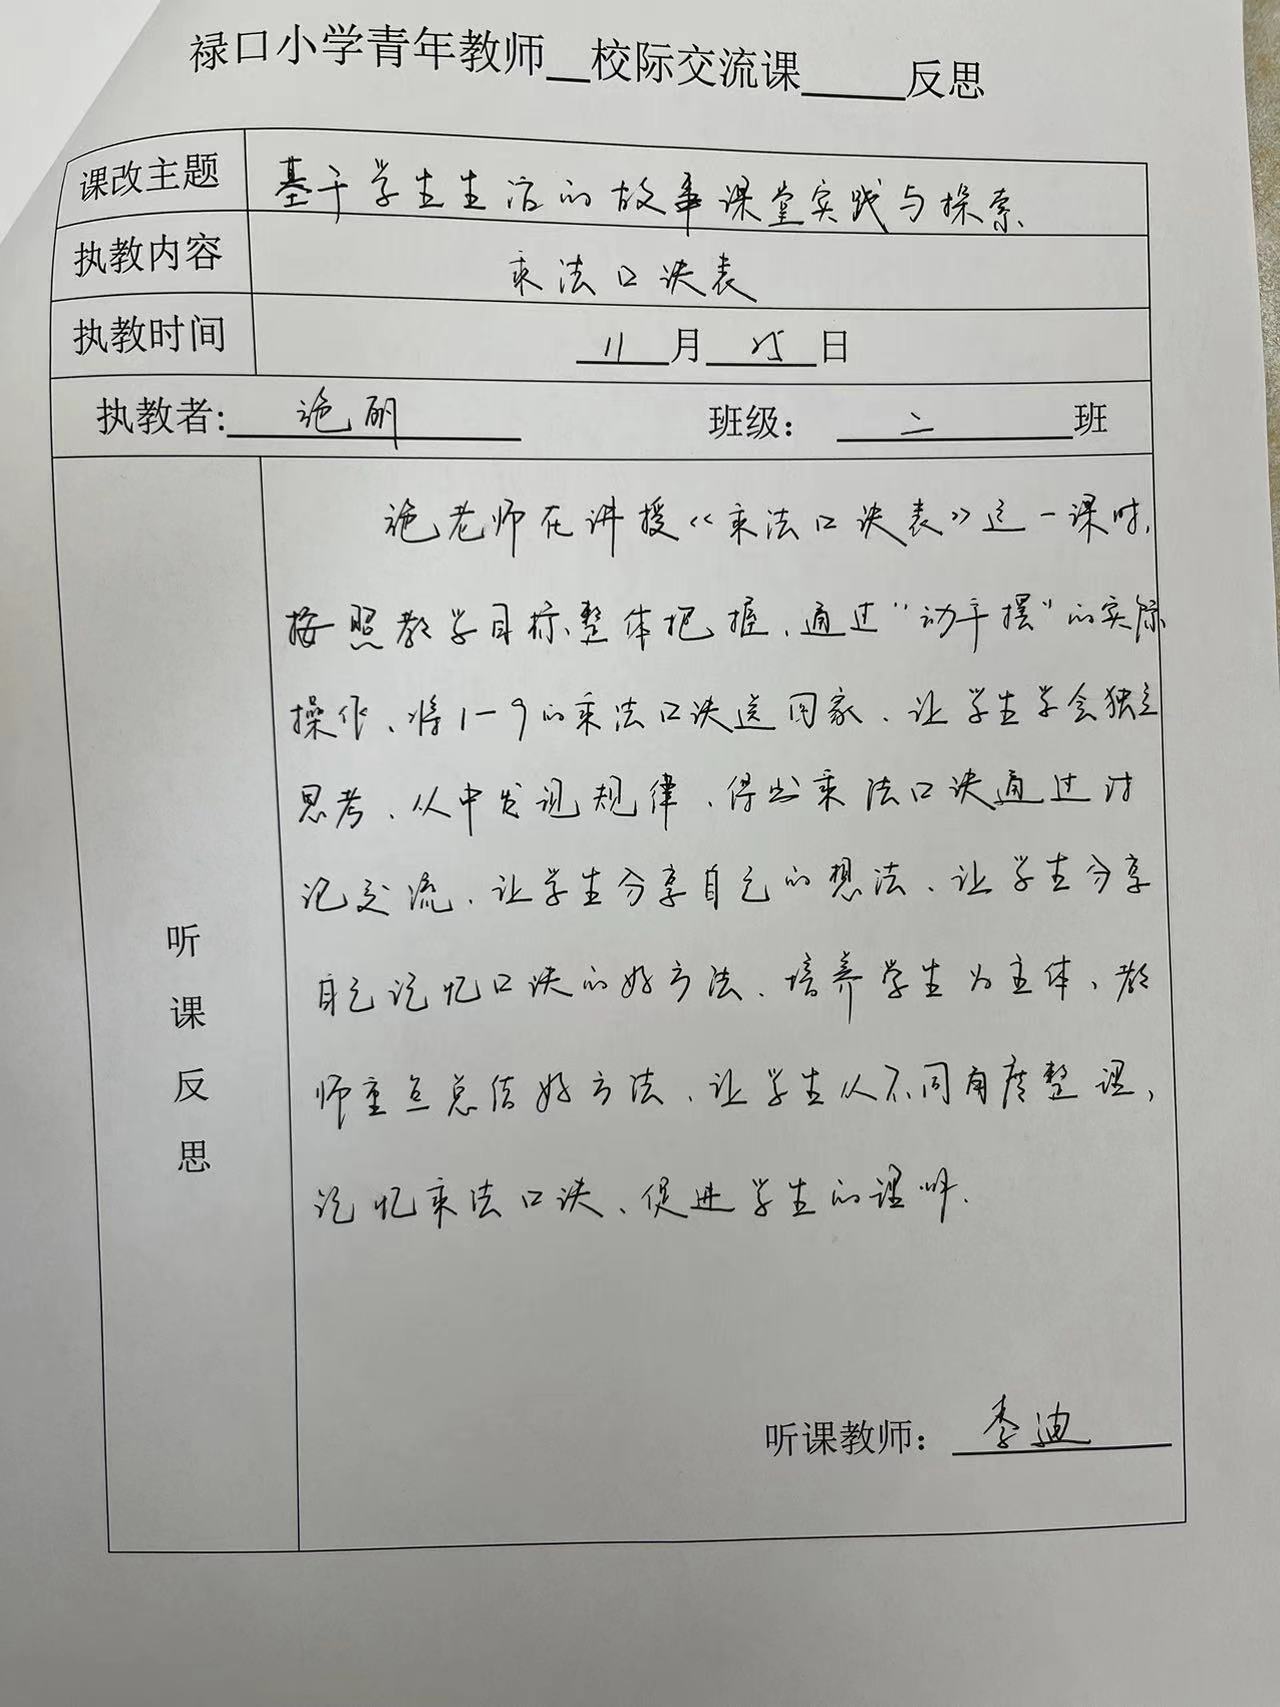 禄口小学青年教师__校际交流课____反思
课改主题 基于学生生活的故事课堂实践与探索
执教内容 乘法口诀表
执教时间 11月25日
执教者: 施丽 班级： 二 班
听课反思
施老师在讲授《乘法口诀表》这一课时，
按照教学目标、整体把握、通过“动手摆”的实际
操作、将1-9的乘法口诀送回家、让学生学会独立
思考、从中发现规律、得出乘法口诀通过讨
论交流、让学生分享自己的想法、让学生分享
自己记忆口诀的好方法、培养学生为主体、教
师重点总结好方法、让学生从不同角度整理、
记忆乘法口诀、促进学生的理解.
听课教师： 李迪